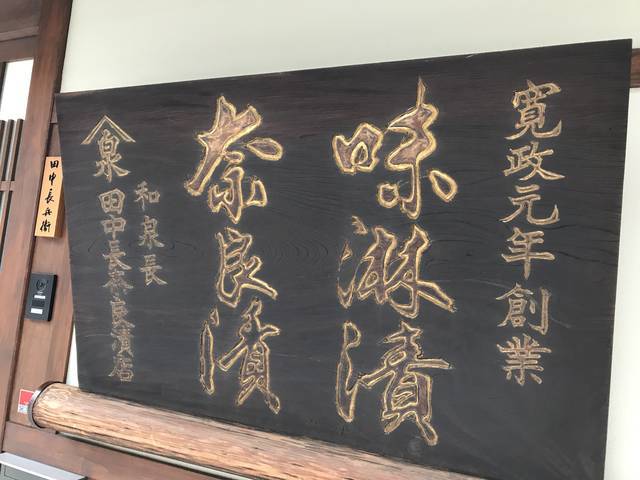 寛政元年創業
味淋漬
奈良漬
和泉長
泉 田中長奈良漬店
田中長兵衛